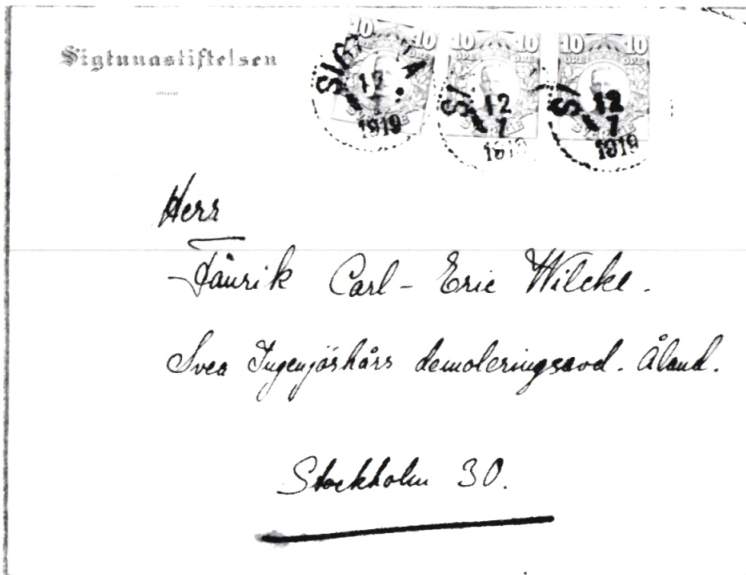 Sigtunastiftelsen
10 10 10 10 10 10
SIGT A 12 7 1919
SI 12 7 1919
SI 12 7 1919
Herr
Fänrik Carl-Eric Wilcke.
Svea Ingenjörkårs demoleringsavd. Åland.
Stockholm 30.